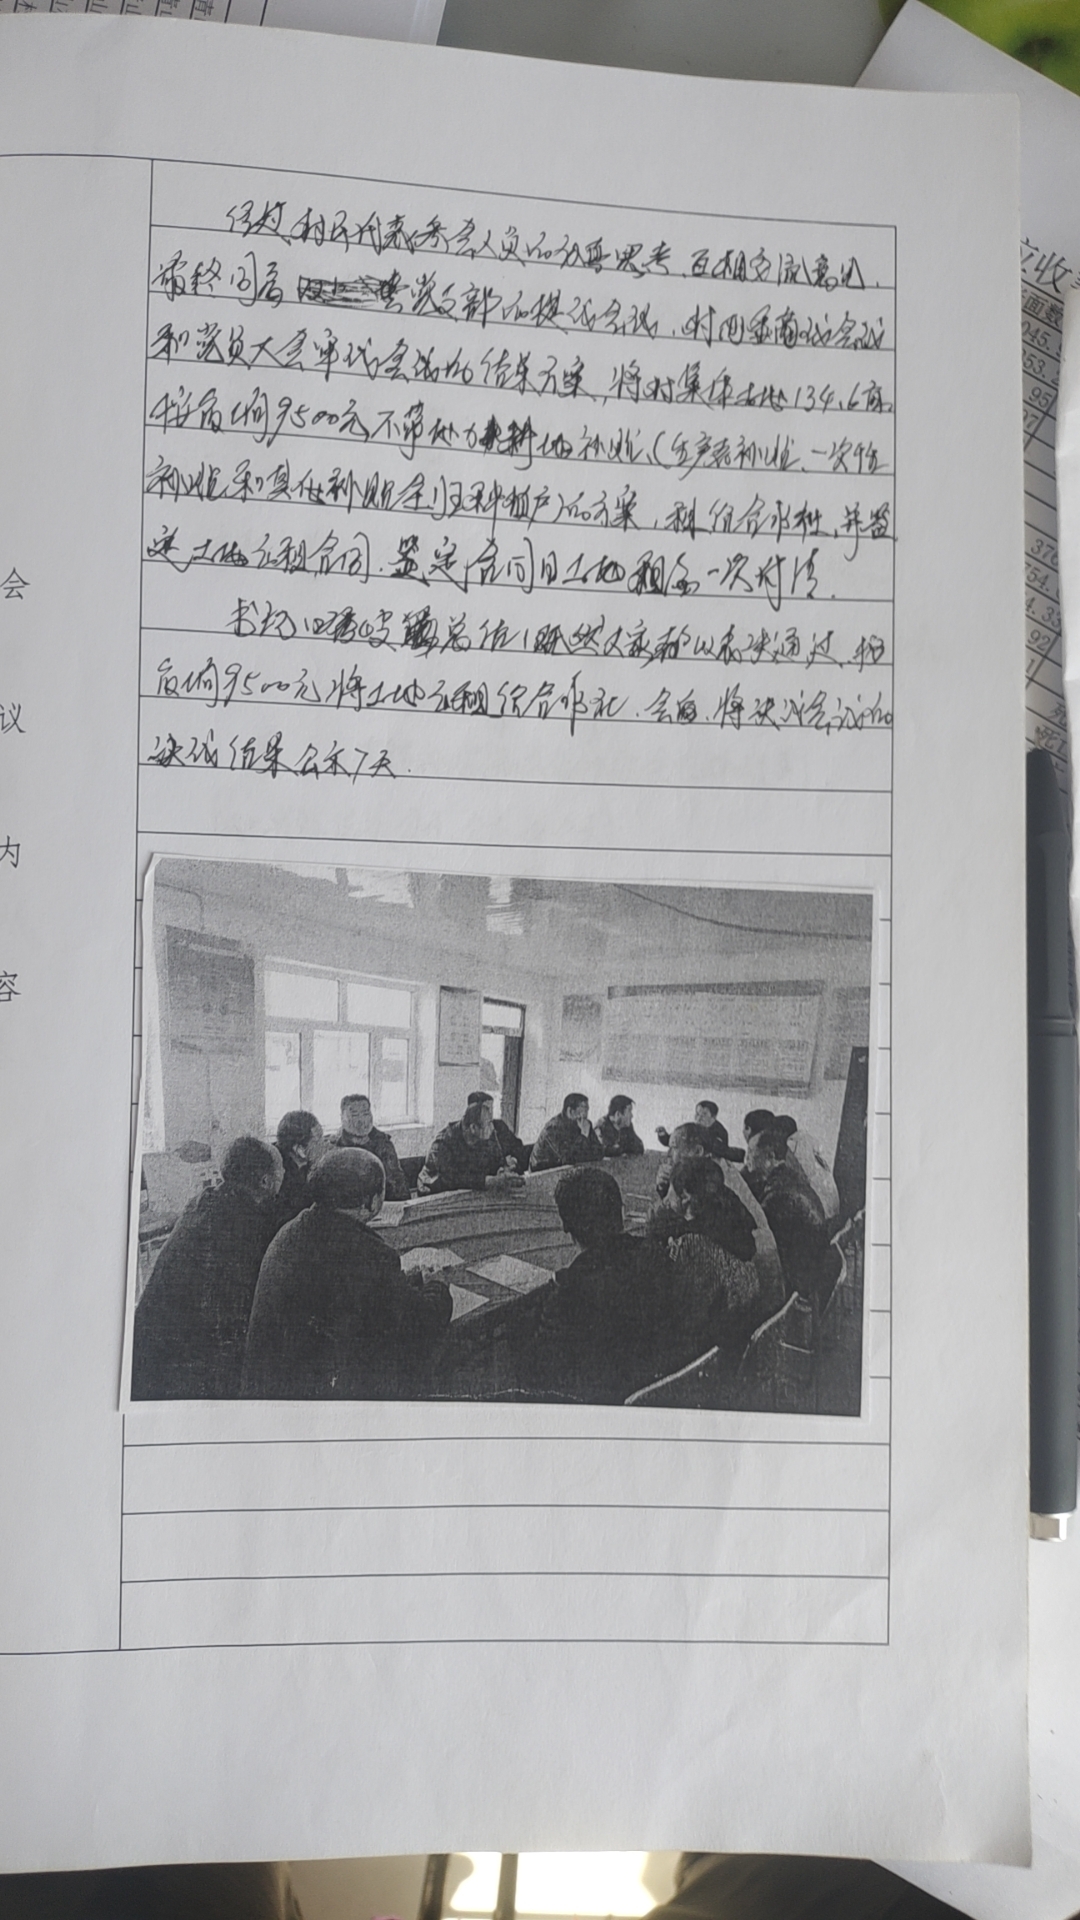 经过村民代表参会人员的认真思考、互相交流意见,
最终同意党支部的提议会议,对两委商议会议
和党员大会审议会议的结果方案,将对集体土地134.6亩
按亩均9500元不带地力耕地补贴(生产者补贴、一次性
补贴和其他补贴全归种植户)的方案,租给合作社,并签
定土地出租合同,签定合同日土地租金一次付清.
书记总结:既然大家都以表决通过,按
亩均9500元将土地出租给合作社.会后,将决议会议的
决议结果公示7天.
会
议
内
容
应收
面数